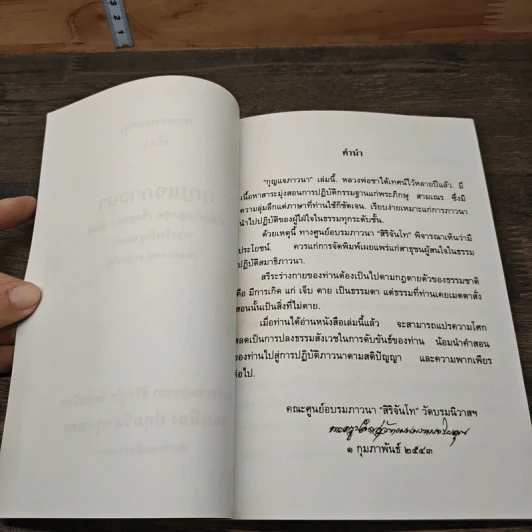 คำนำ
"กุญแจภาวนา" เล่มนี้. หลวงพ่อชาได้เทศน์ไว้หลายปีแล้ว. มี
เนื้อหาสาระมุ่งสอนการปฏิบัติกรรมฐานแก่พระภิกษุ สามเณร ซึ่งมี
ความลุ่มลึกแต่ภาษาที่ท่านใช้ก็ชัดเจน. เรียบง่ายเหมาะแก่การภาวนา
นำไปปฏิบัติของผู้ใฝ่ใจในธรรมทุกระดับชั้น.
ด้วยเหตุนี้ ทางศูนย์อบรมภาวนา "สิริจันโท" พิจารณาเห็นว่ามี
ประโยชน์. ควรแก่การจัดพิมพ์เผยแพร่แก่สาธุชนผู้สนใจในธรรม
ปฏิบัติสมาธิภาวนา.
สรีระร่างกายของท่านต้องเป็นไปตามกฎตายตัวของธรรมชาติ
คือ มีการเกิด แก่ เจ็บ ตาย เป็นธรรมดา แต่ธรรมที่ท่านเคยเมตตาสั่ง
สอนนั้นเป็นสิ่งที่ไม่ตาย.
เมื่อท่านได้อ่านหนังสือเล่มนี้แล้ว จะสามารถแปรความโศก
สลดเป็นการปลงธรรมสังเวชในการดับขันธ์ของท่าน น้อมนำคำสอน
ของท่านไปสู่การปฏิบัติภาวนาตามสติปัญญา และความพากเพียร
ต่อไป.
คณะศูนย์อบรมภาวนา "สิริจันโท" วัดบรมนิวาสฯ
๑ กุมภาพันธ์ ๒๕๔๓